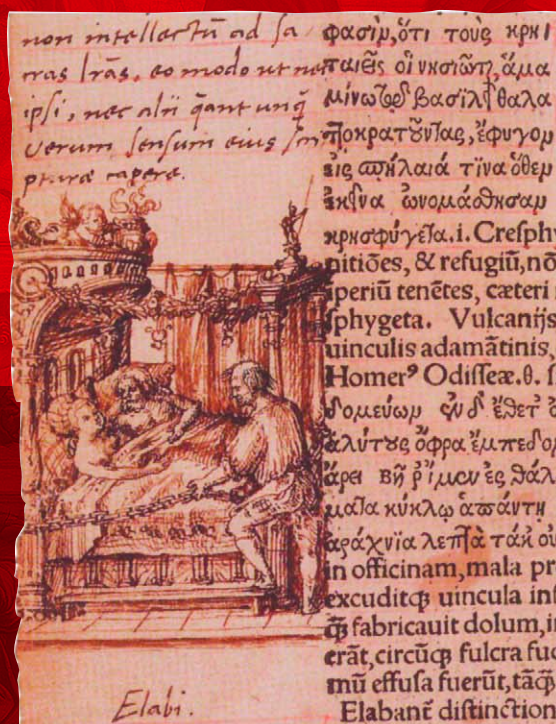 non intellectū ad sa
cras lrās, eo modo ut
ipsi, nec alii q̄ant unq̄
verum sensum eius
pturæ capere.
Elabi.
φασὶμ, ὅτι τοὺς κρη
οἱ νησιῶτῃ, ἅμα
βασιλ θαλα
ἔφυγομ
εἰς τινα ὅθεμ
ὠνομάσθησαμ
κρησφύγεῖα. i. Cresphy
nitiões, & refugiũ, nõ
iperiũ tenẽtes, cæteri
sphygeta. Vulcanijs
uinculis adamãtinis,
Homer⁹ Odisseæ. θ. s
δ᾽ ἔθετ᾽
ἀλύτους ὄφρα ἔμπεδομ
ἐς θάλ
κύκλῳ ἁπάντῃ
ἀράχνια λεπτὰ
in officinam, mala pr
excuditꝗ uincula ins
ꝗ fabricauit dolum, i
erãt, circũꝗ fulcra fuc
mũ effusa fuerũt, tãꝗ
Elabant̃ distinction